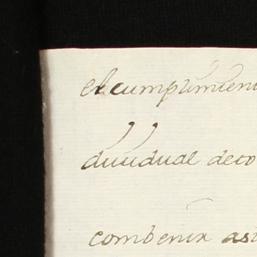 el cumplimien
duuidual deto
combenir as